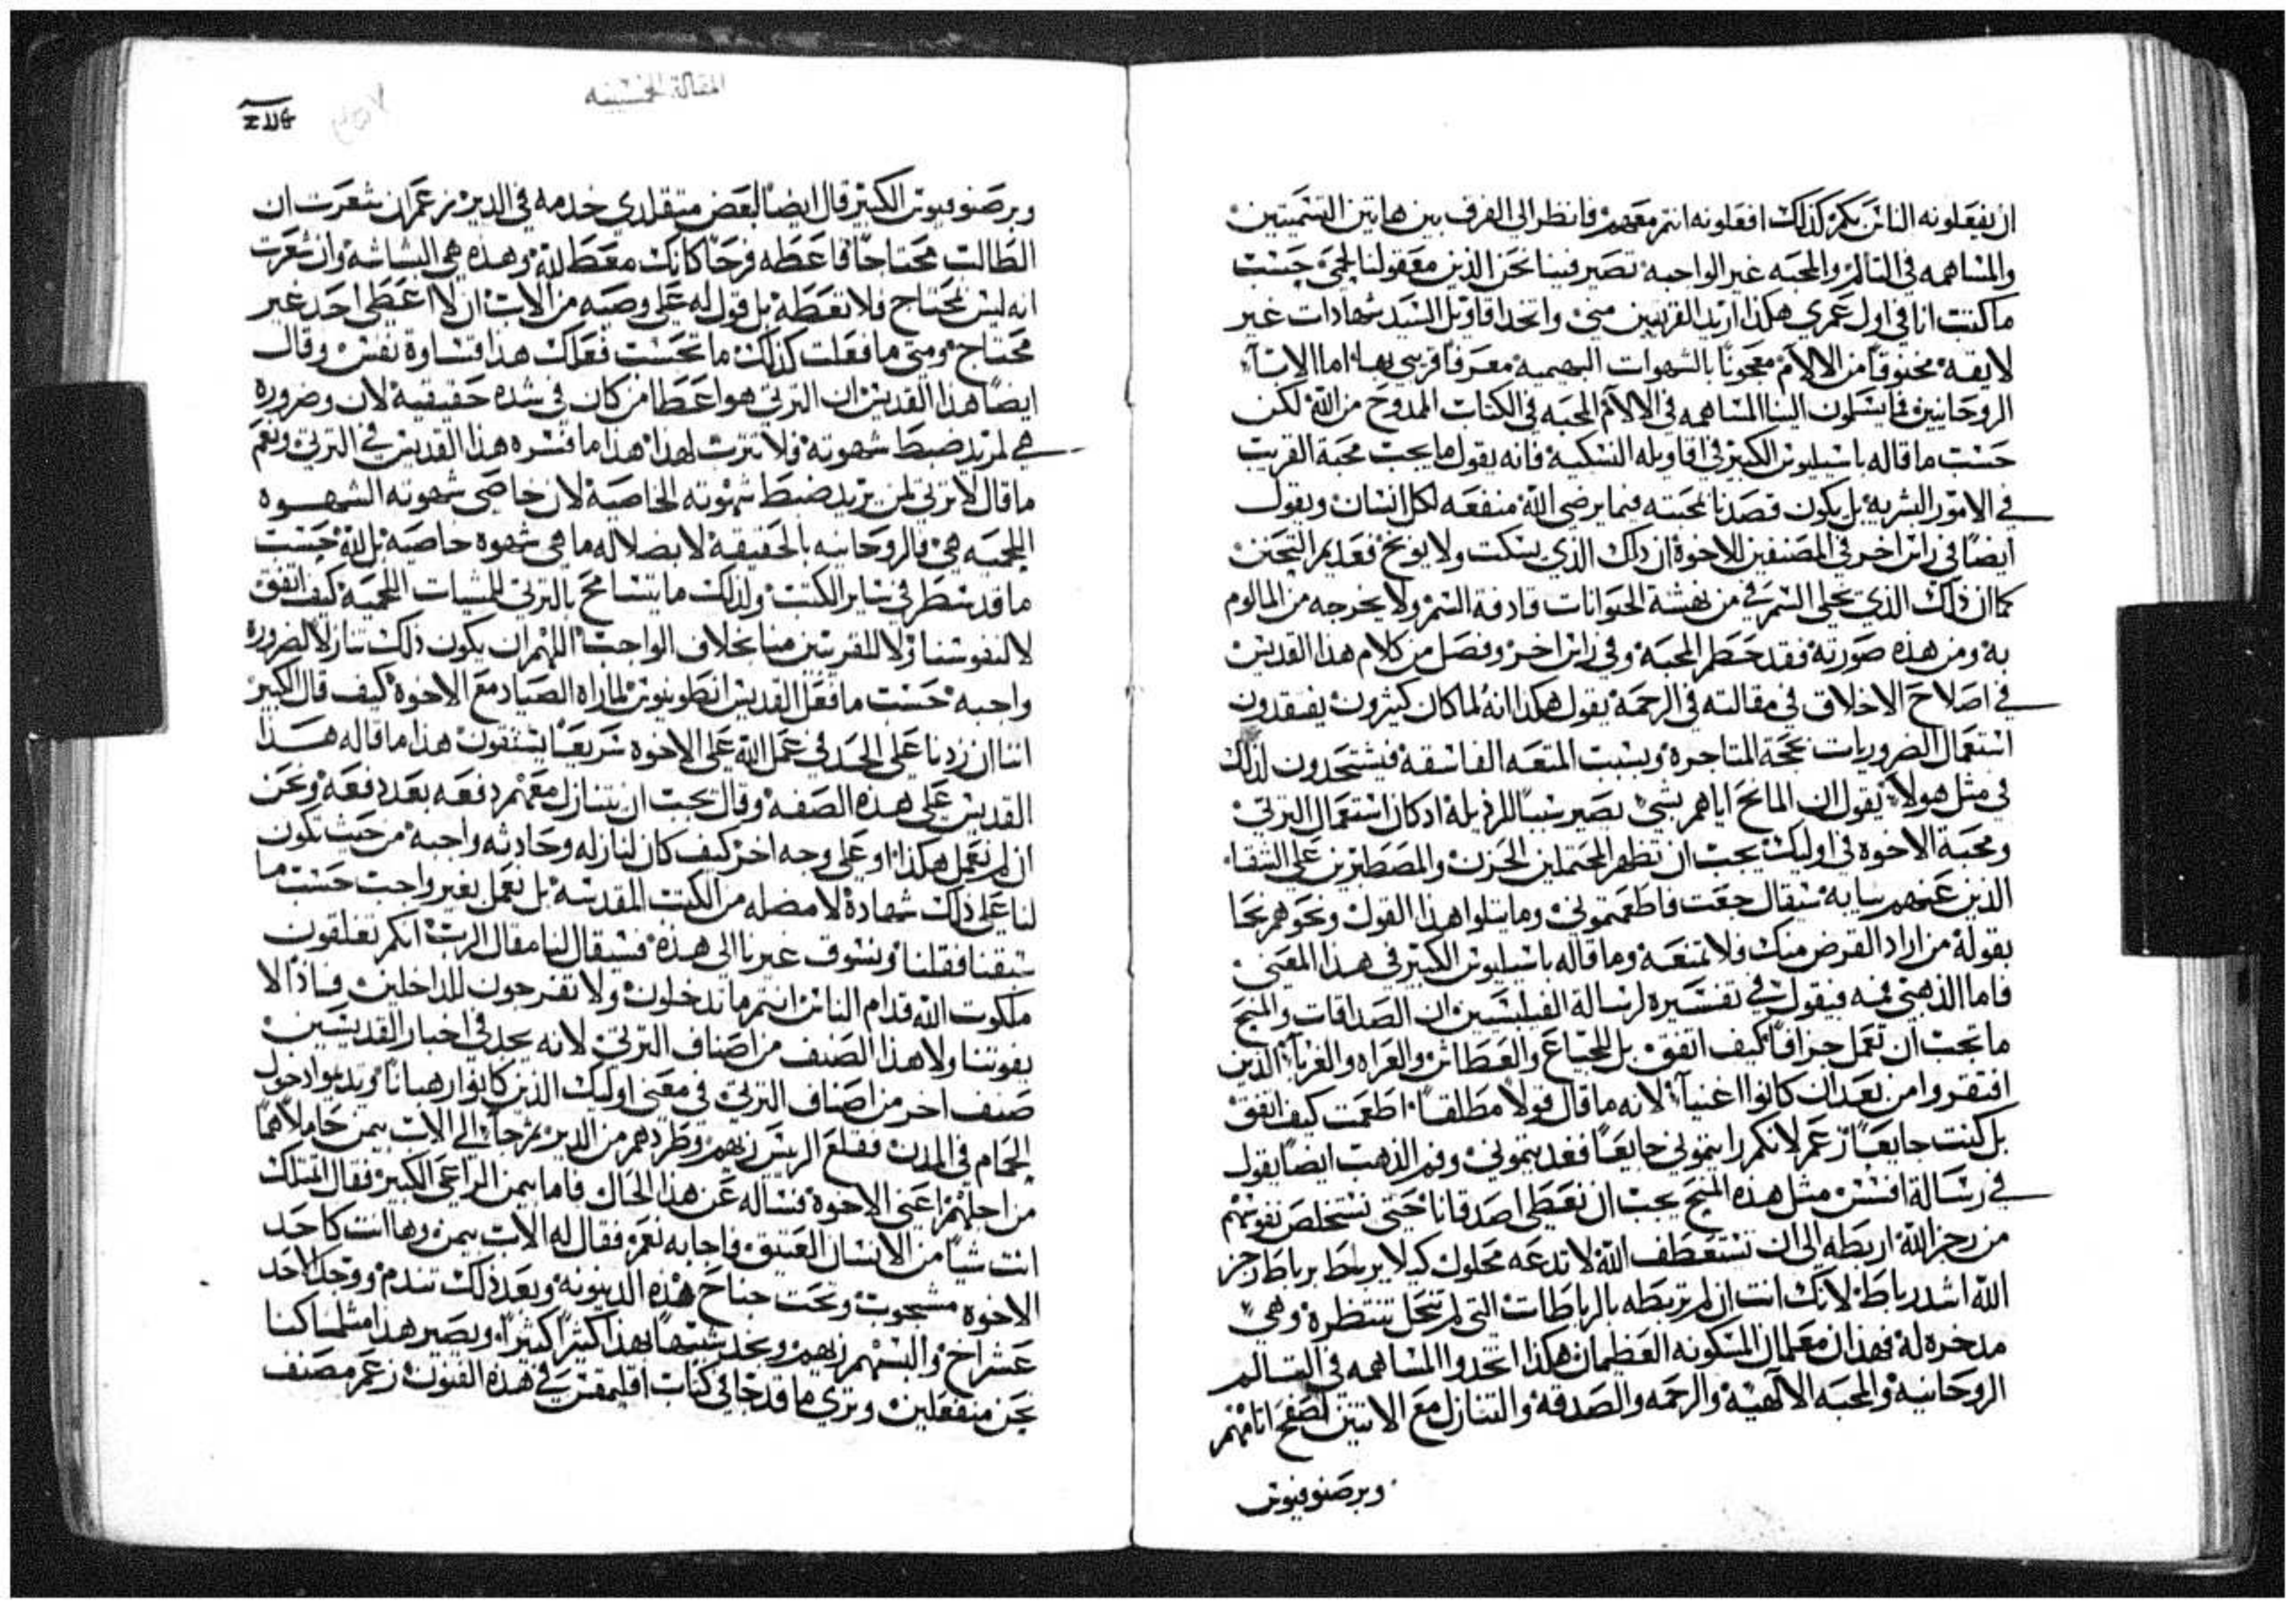 ان يفعلونه الناس بكم كذلك افعلونه انتم معهم فانظر الي الفرق بين هاتين التسميتين
والمساهمه في التالم والمحبه غير الواجبه تصير فينا نحن الذين معقولنا لحمي حسب
ما كنت انا في اول عمري هكذا اريد القريبين مني واتخذ اقاويل السيد شهادات غير
لايقه مخنوقا من الالام معجونا بالشهوات البهيميه معرفا قريبي بها اما الابآ
الروحانيين فما يسلمون الينا المساهمه في الالام المحبه في الكتاب الممدوح من الله لكن
حسب ما قاله باسيليوس الكبير في اقاويله النسكيه فانه يقول ما يجب محبة القريب
في الامور البشريه بل يكون قصدنا بمحبته فيما يرضي الله منفعه لكل انسان ويقول
ايضا في راس اخر في المصنفين للاخوة ان ذلك الذي يسكت ولا يوبخ فعديم التحنن
كما ان ذلك الذي يخلي السم في من نهشة الحيوانات قادفة السم ولا يخرجه من المالوم
به ومن هذه صورته فقد حطم المحبه وفي راس اخر وفصل من كلام هذا القديس
في اصلاح الاخلاق في مقالته في الرحمه يقول هكذا انه لما كان كثيرون يفتقدون
استعمال الضروريات بحجة المتاجره وبسبب المتعه الفاسقه فيستجدون لذلك
في مثل هولاء يقول ان المانح اياهم بشي يصير سببا للرذيله اد كان استعمال الترتي
ومحبة الاخوه في اوليك يجب ان تظهر المحتملين الحزن والمصطبرين علي الشقاء
الذين عنهم سيقال جعت فاطعمتموني وما يتلوا هذا القول ونحوهم نحا
بقوله من اراد القرض منك فلا تمنعه وما قاله باسيليوس الكبير في هذا المعني
فاما الذهبي فمه فيقول في تفسيره لرسالة الفيلبسيين ان الصداقات والمنح
ما يجب ان تعمل جزافا كيف اتفق بل للجياع والعطاش والعراه والغربآ الذين
افتقروا من بعد ان كانوا اغنيآ لانه ما قال قولا مطلقا اطعمت كيف اتفق
بل كنت جايعا زعم لانكم رايتموني جايعا فغديتموني وفم الذهب ايضا يقول
في رسالة افسس مثل هذه المنح يجب ان نعطي اصدقانا حتي نستخلص نفوسهم
من رجز الله اربطه الي ان تستعطف الله لا تدعه محلول كيلا يربط برباط رجز
الله اشد رباط لانك انت ان لم تربطه بالرباطات التي لم تنحل تنتظره وهي
مدخره له فهذان معلمان المسكونه العظيمان هكذا اتخدوا المساهمه في التسالم
الروحانيه والمحبه الالهيه والرحمه والصدقه والتنازل مع الاثنين
وبرصنوفيوس
المقالة الخمسينه
وبرصنوفيوس الكبير قال ايضا لبعض متقلدي خدمه في الدير زعم ان شعرت ان
الطالب محتاجا فاعطه فرحا كانك معط لله وهذه هي البشاشه وان شعرت
انه ليس محتاج فلا تعطه بل قول له علي وصيه من الاب ان لا اعطي احد غير
محتاج ومتي ما فعلت كذلك ما تحسب فعلك هذا قساوة نفس وقال
ايضا هذا القديس ان الترتي هو اعطا من كان في شده حقيقيه لان وضروره
هي لم يريد ضبط شهوته فلا تترت لهذا هذا ما فسره هذا القديس في الترتي ونعم
ما قال لا ترتي لمن يريد ضبط شهوته الخاصيه لان خاصي شهوته الشهوه
اللحميه هي فالروحانيه بالحقيقه لا بضلاله ما هي شهوه خاصيه بل لله حسب
ما قد سطر في ساير الكتب ولذلك ما يتسامح بالترتي للمشيات اللحميه كيف اتفق
لا لنفوسنا ولا للقريبين منا بخلاف الواجب اللهم ان يكون ذلك تنازلا لضروره
واجبه حسب ما فعل القديس انطونيوس لما راه الصياد مع الاخوه كيف قال الكبير
اننا ان زدنا علي الحد في عمل الله علي الاخوه سريعا يشتقون هذا ما قاله هذا
القديس علي هذه الصفه وقال يجب ان يتنازل معهم دفعه بعد دفعه ونحن
ان لم نعمل هكذا او علي وجه اخر كيف كان لنازله وحادثه واجبه من حيث تكون
لنا علي ذلك شهادة لا مضله من الكتب المقدسه بل نعمل بغير واجب حسب ما
سبقنا فقلنا ونسوق غيرنا الي هذه فسيقال لنا مقال الرب انكم تغلقون
ملكوت الله قدام الناس انتم ما تدخلون ولا تفرجون للداخلين فاذا لا
يفوتنا ولا هذا الصنف من اصناف الترتي لانه يجد في اخبار القديسين
صنف اخر من اصناف الترتي في معني اوليك الذين كانوا رهبانا ويديموا دخول
الحمام في المدن فقلع الريس زيهم وطردهم من الدير ثم جآ الي الاب بيمن حاملا هما
من اجلهم اعني الاخوة فساله عن هذا الحال فاما بيمن الراعي الكبير فقال اتمتلك
انت شيا من الانسان العتيق فاجابه نعم فقال له الاب بيمن وها انت كاحد
الاخوه مسجوب وتحت جناح هذه الدينونه وبعد ذلك تندم ووجد لاحد
عشر اخ والبسهم زيهم ونجد شبيها بهذا كثيرا كثيرا ويصير هذا مثلما كنا
نحن منفعلين وتري ما قد جا في كتاب اقليمقس في هذه الفنون زعم مصنف